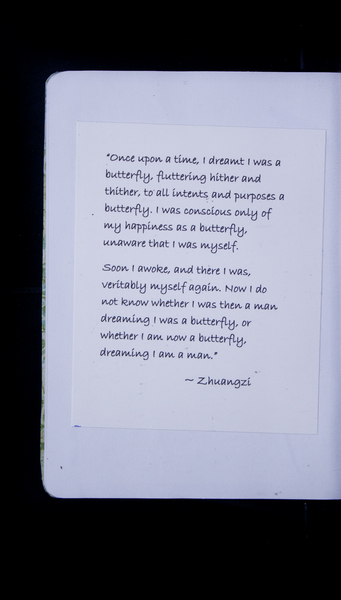 "Once upon a time, I dreamt I was a
butterfly, fluttering hither and
thither, to all intents and purposes a
butterfly. I was conscious only of
my happiness as a butterfly,
unaware that I was myself.
Soon I awoke, and there I was,
veritably myself again. Now I do
not know whether I was then a man
dreaming I was a butterfly, or
whether I am now a butterfly,
dreaming I am a man."
~ Zhuangzi